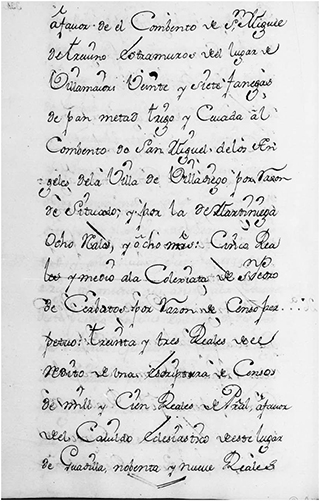 afavor de el Combento de Sn. Miguel
de treuino Extramuros del lugar de
Villamaior: Veinte y Siete fanegas
de pan metad trigo y Cevada al
Combento de San Miguel delos An
geles dela Villa de Villadiego por razon
de Situado; y por la de Martiniega
Ocho Reales, y ocho mrs: Cinco Rea
les y medio ala Colexiata de Sn. Pedro
de Cerbatos por razon de Censo per
petuo: treinta y tres Reales de el
redito de una Escriptura de Censos
de mill y Cien Reales de Pral, afavor
del Cavildo Eclesiastico de este lugar
de Guadilla, nobenta y nueve Reales